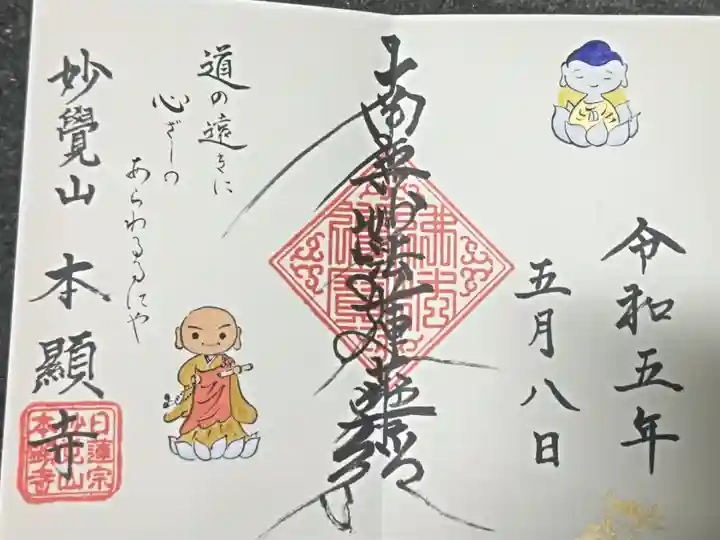 令和五年
五月八日
南無妙法蓮華経
道の遠きに
心ざしの
あらわるるにや
妙覺山 本顯寺
日蓮宗
妙覚山
本顕寺